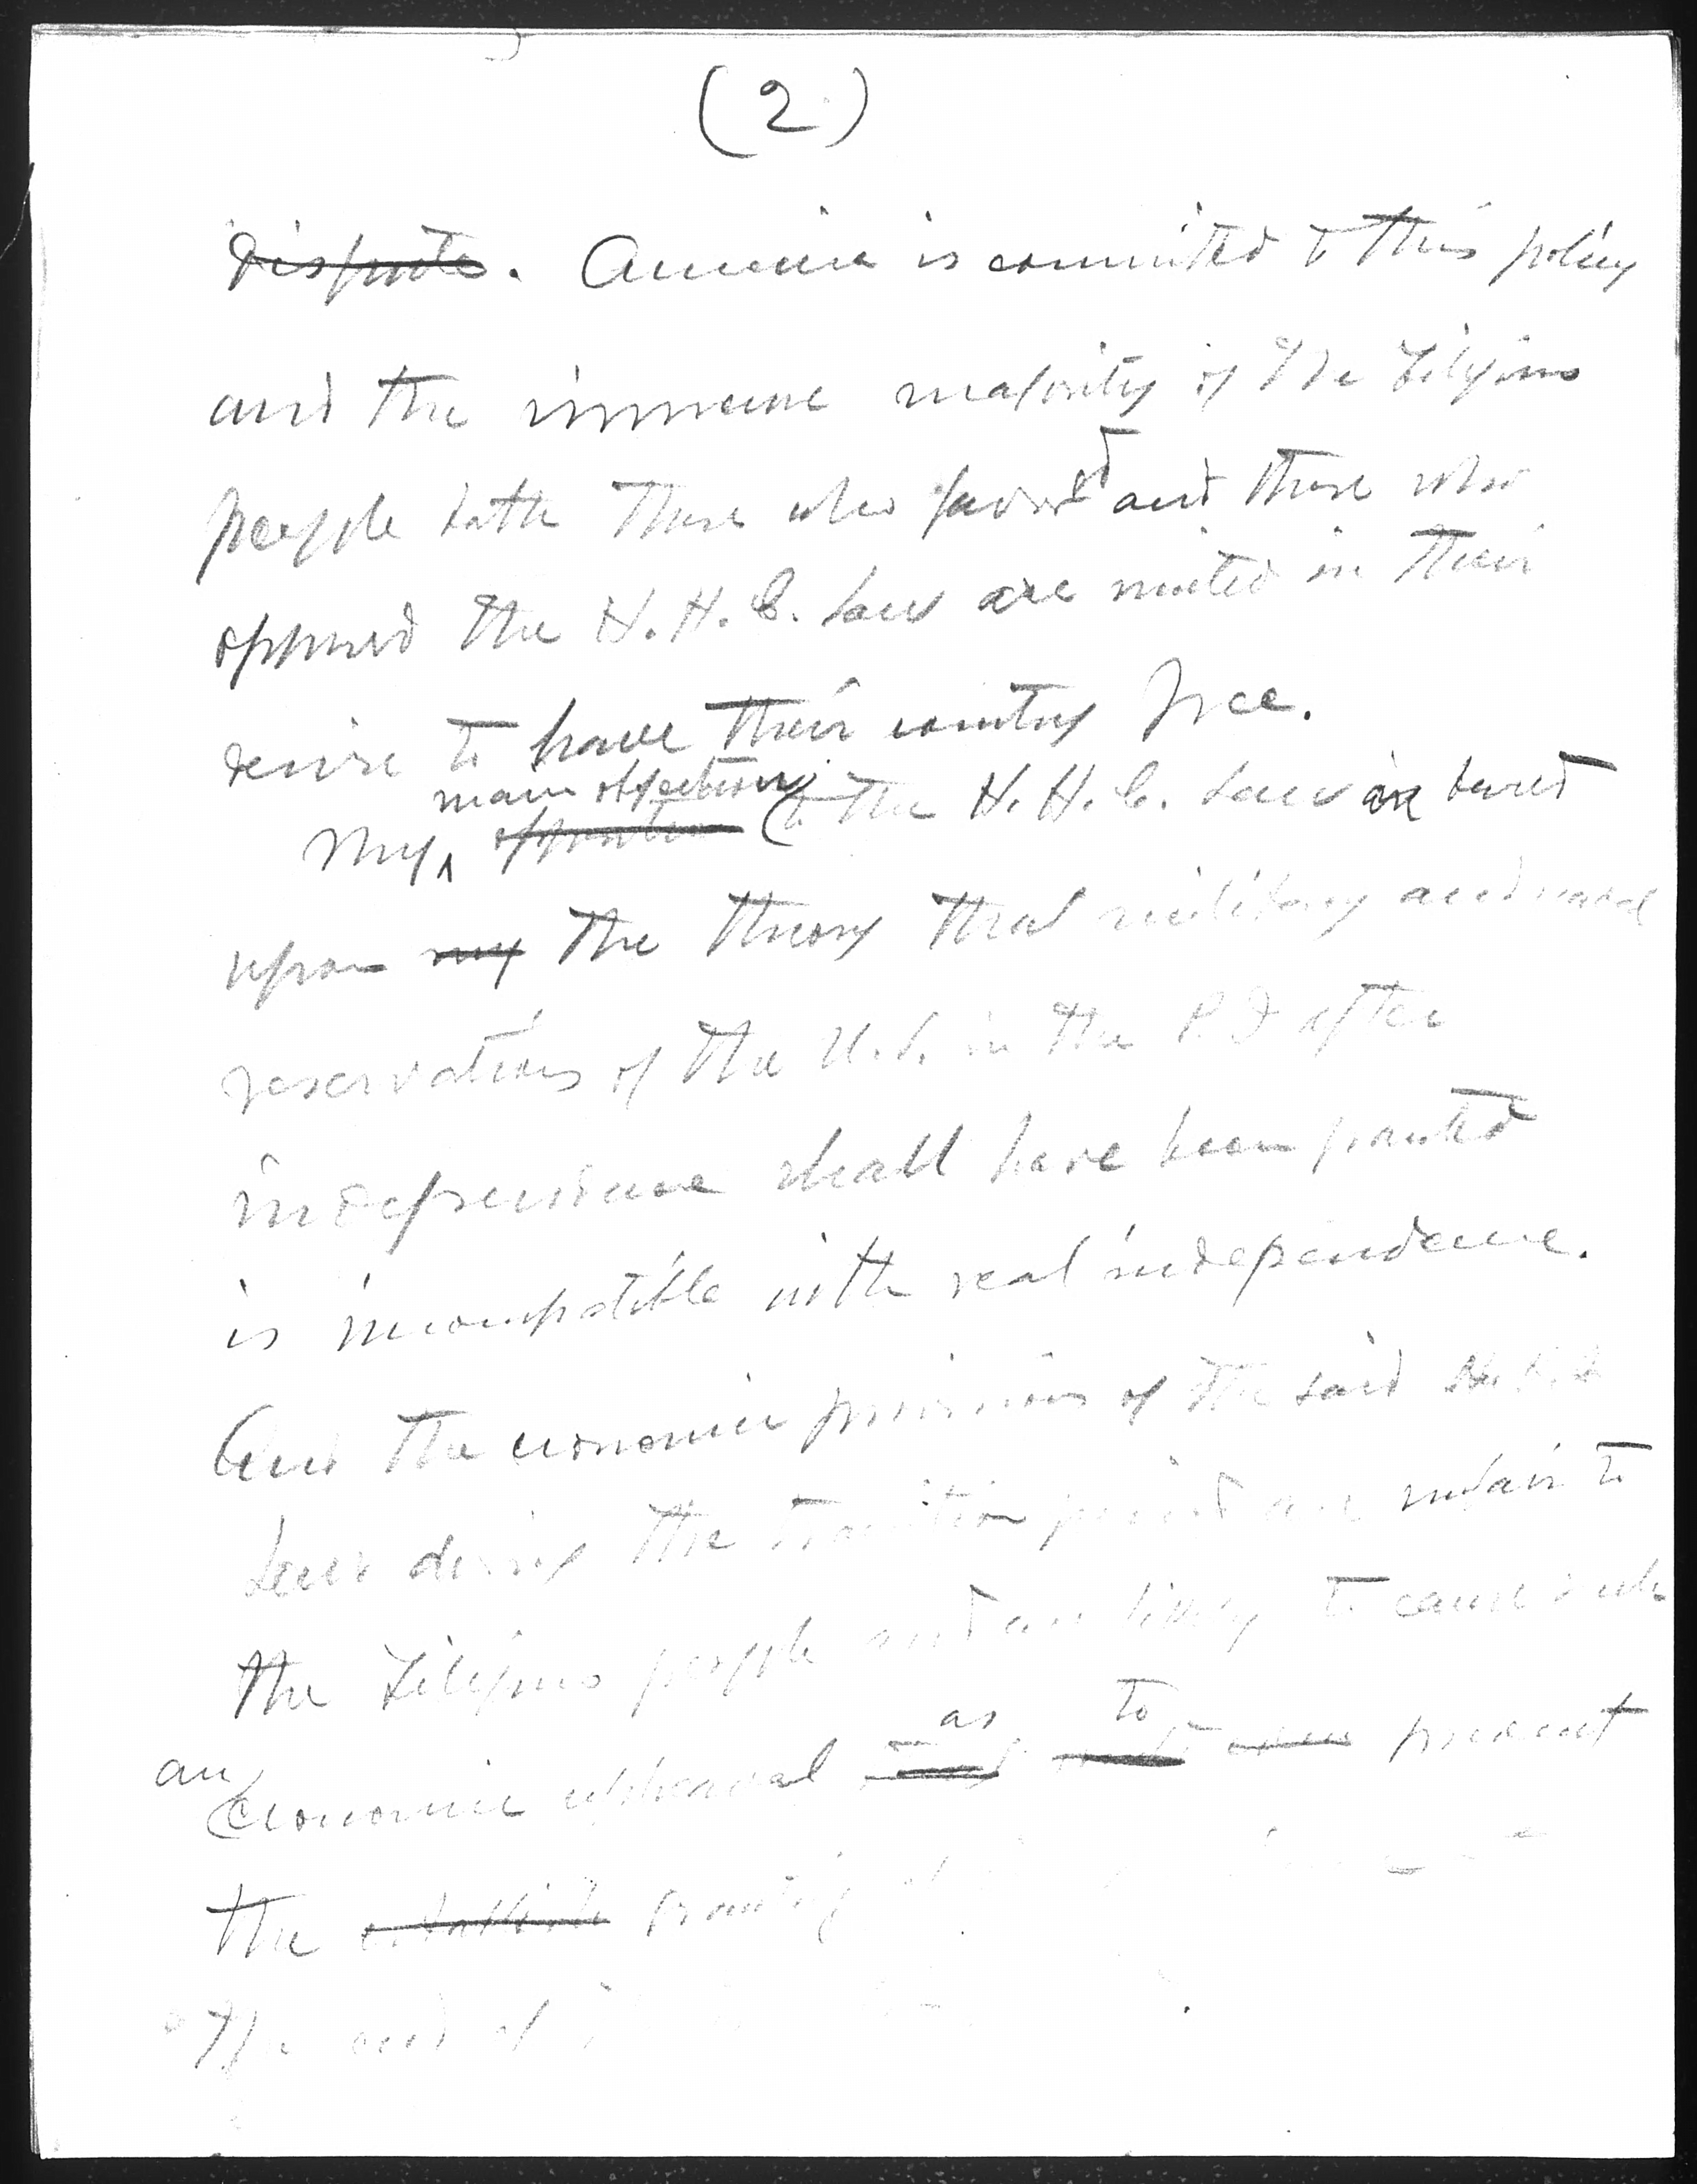 (2)
dispute. America is committed to this policy
and the immense majority of the Filipino
people both those who favored and those who
opposed the H. H. C. Law are united in their
desire to have their country free.
main objections
My opposition to the H. H. C. Law are based
upon my the theory that military and naval
reservations of the U.S. in the P.I after
independence shall have been granted
is incompatible with real independence.
And the economic provisions of the said
Law during the transition period are unfair to
the Filipino people and are likely to cause such
as to
an economic upheaval prevent
the establish granting
the end of